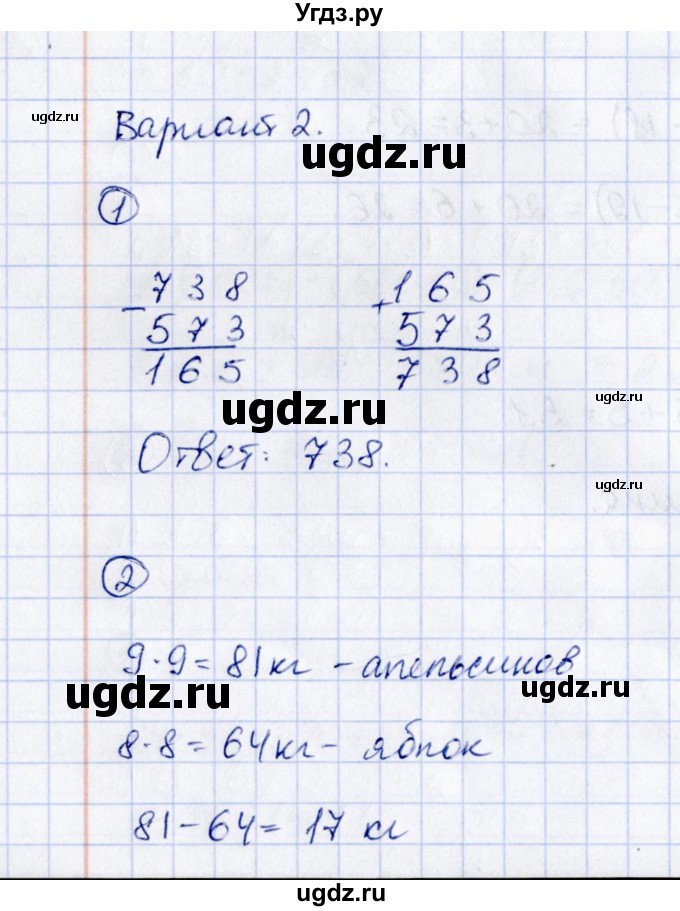 Угдз.ру
ugdz.ru
Вариант 2.
ugdz.ru
1
- 738 + 165
573 573
165 738
ugdz.ru
ugdz.ru
Ответ: 738.
ugdz.ru
ugdz.ru
2
9·9=81кг - апельсинов
ugdz.ru
ugdz.ru
8·8=64кг- яблок
81-64= 17 кг
ugdz.ru
ugdz.ru